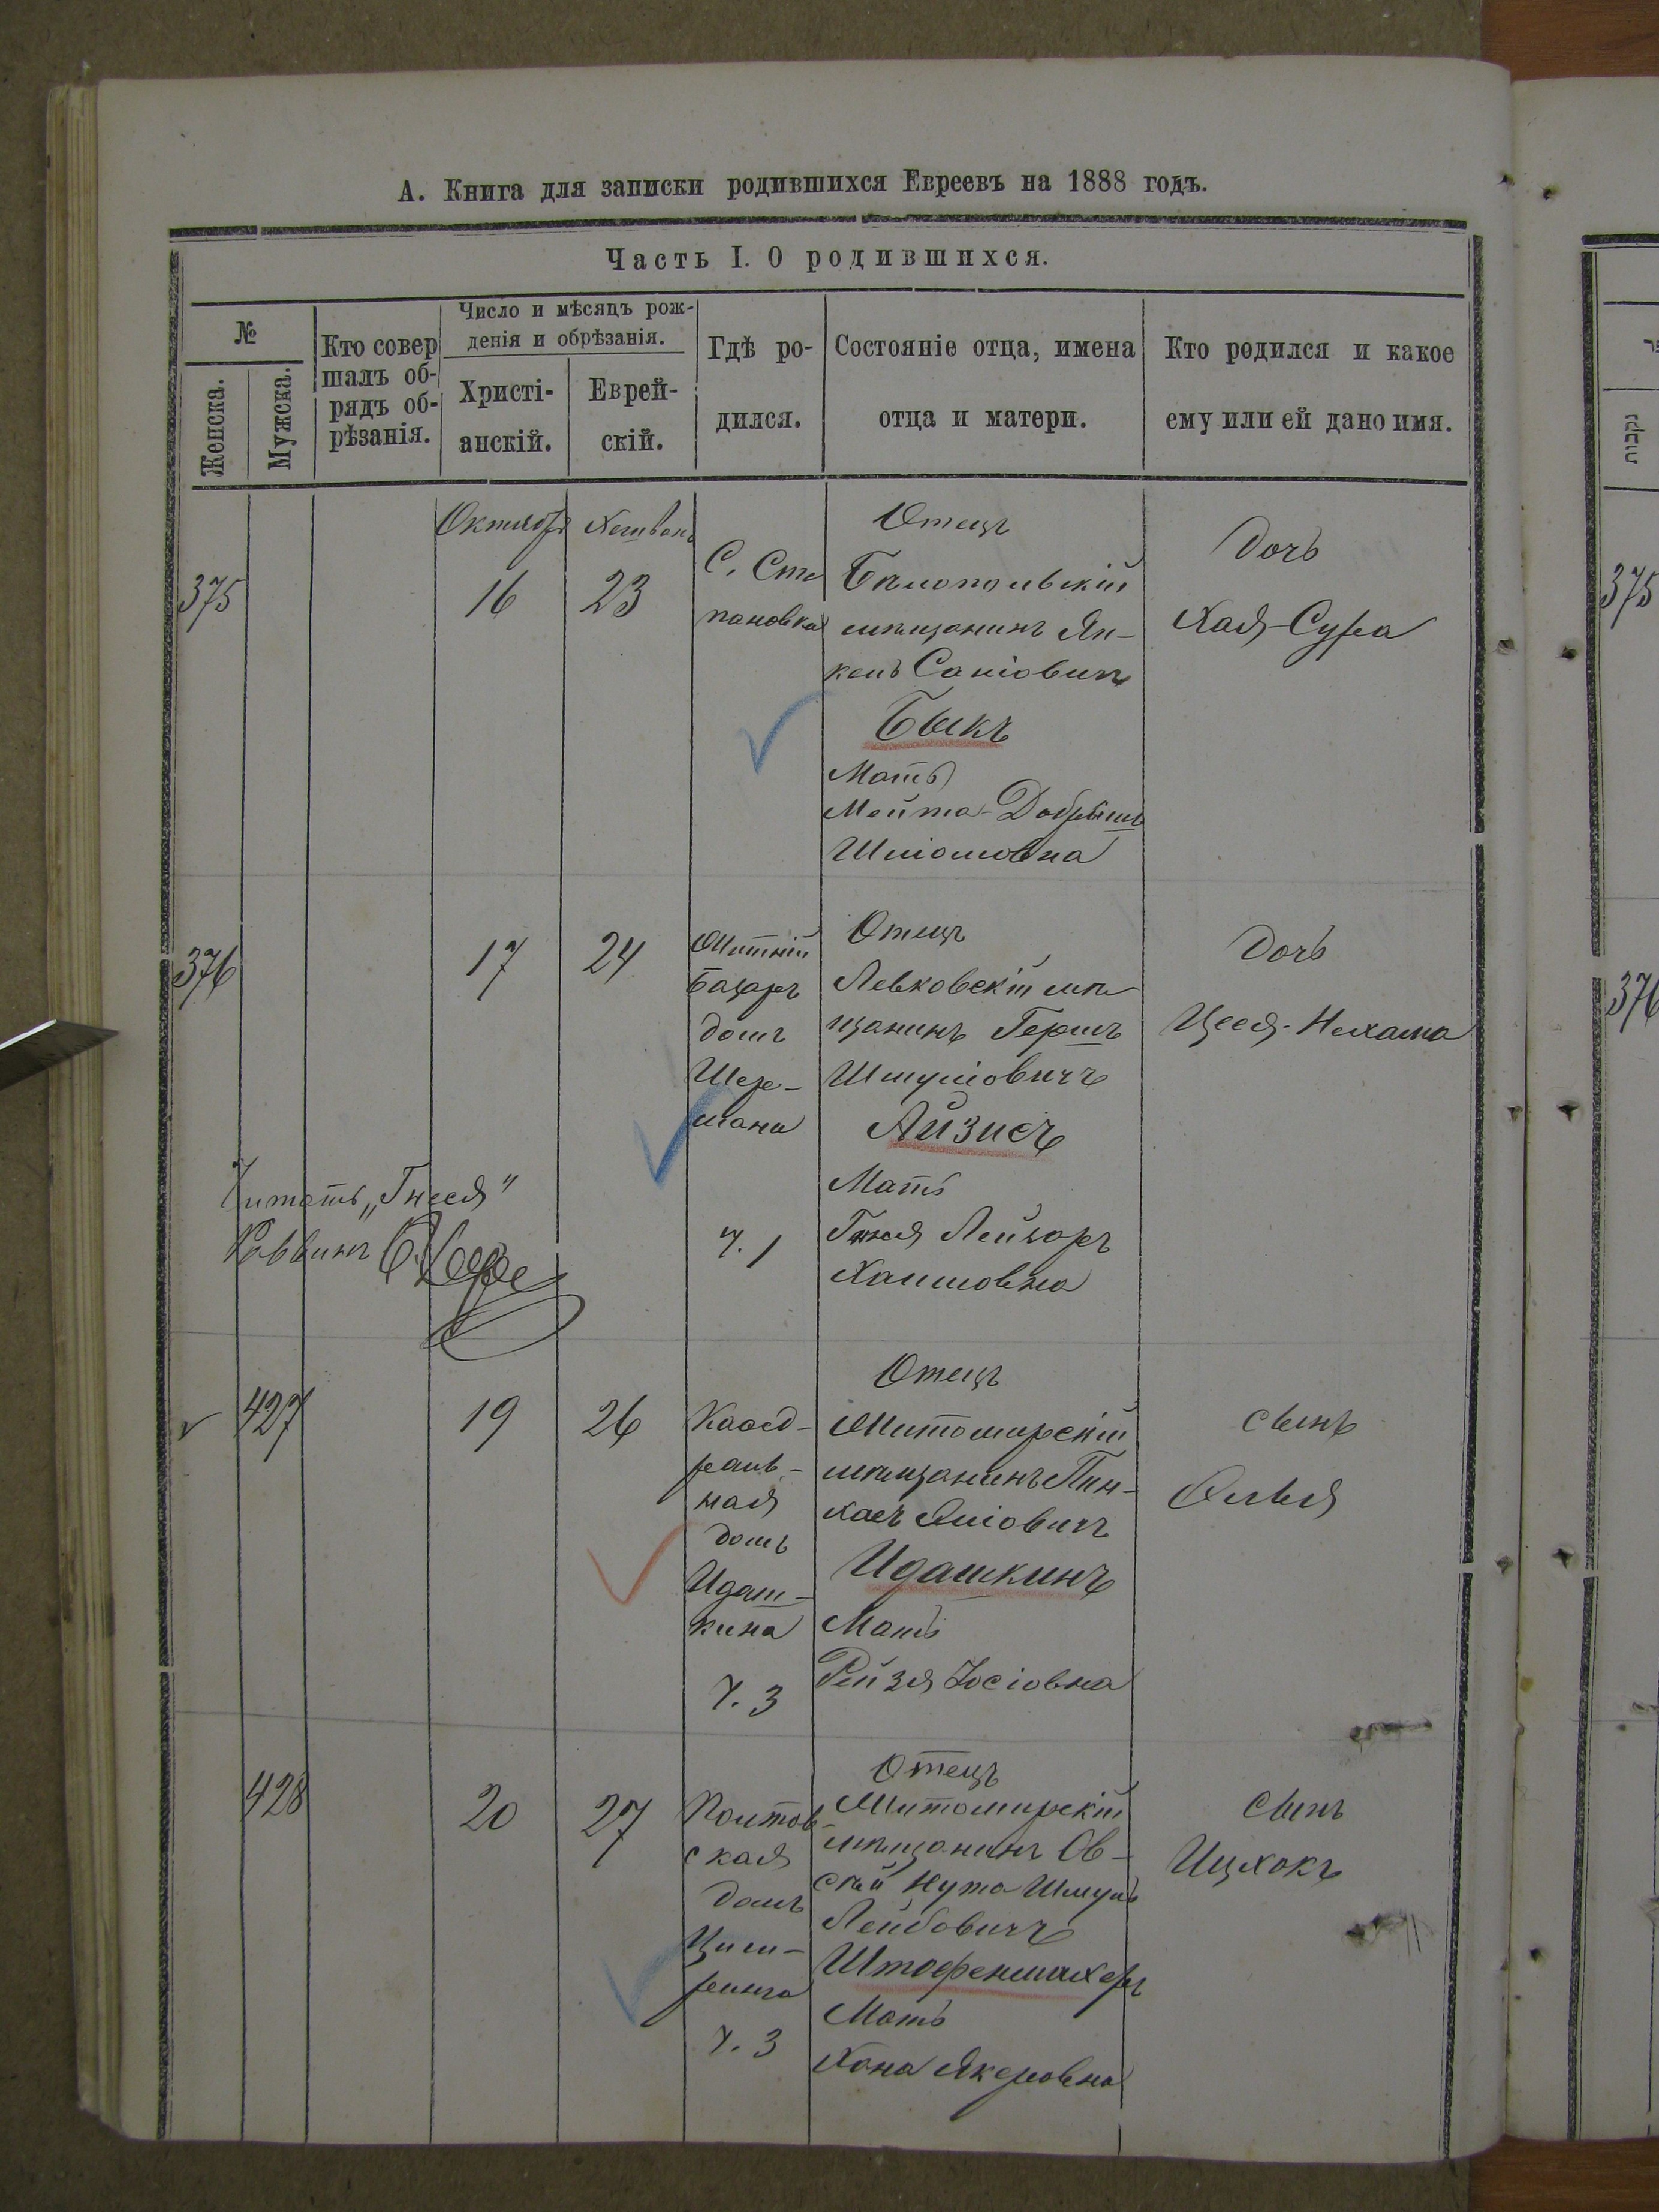 А. Книга для записки родившихся Евреевъ на 1888 годъ.
Часть I. О родившихся.
№
Женска.
Мужска.
Кто совер
шалъ об-
рядъ об-
рѣзанія.
Число и мѣсяцъ рож-
денія и обрѣзанія.
Христі-
анскій.
Еврей-
скій.
Гдѣ ро-
дился.
Состояніе отца, имена
отца и матери.
Кто родился и какое
ему или ей дано имя.
375
Октября
16
Хешвонъ
23
С. Сте
пановка
Отецъ
Бѣлопольскій
мѣщанинъ Ян-
кель Саліовичъ
Быкъ
Мать
Мейта-Добрышъ
Шліомовна
Дочь
Хая-Сура
376
17
24
Житній
Базаръ
домъ
Шер-
мана
ч. 1
Отецъ
Левковскій мѣ
щанинъ Гершъ
Шмуліовичъ
Айзисъ
Мать
Лейзоръ
Хаимовна
Дочь
Цеся-Нехама
Читать „Гнеся"
Раввинъ
427
19
26
Каѳед-
раль-
ная
домъ
Идаш-
кина
ч. 3
Отецъ
Житомирскій
мѣщанинъ Пин-
хасъ Эліовичъ
Идашкинъ
Мать
Рейзя Іосіовна
сынъ
Эльья
428
20
27
ская
домъ
ч. 3
Отецъ
Житомирскій
мѣщанинъ Ов-
сей Нута Шмуль
Лейбовичъ
Штофенмахеръ
Мать
Хана Якеровна
сынъ
Ицхокъ
375
376